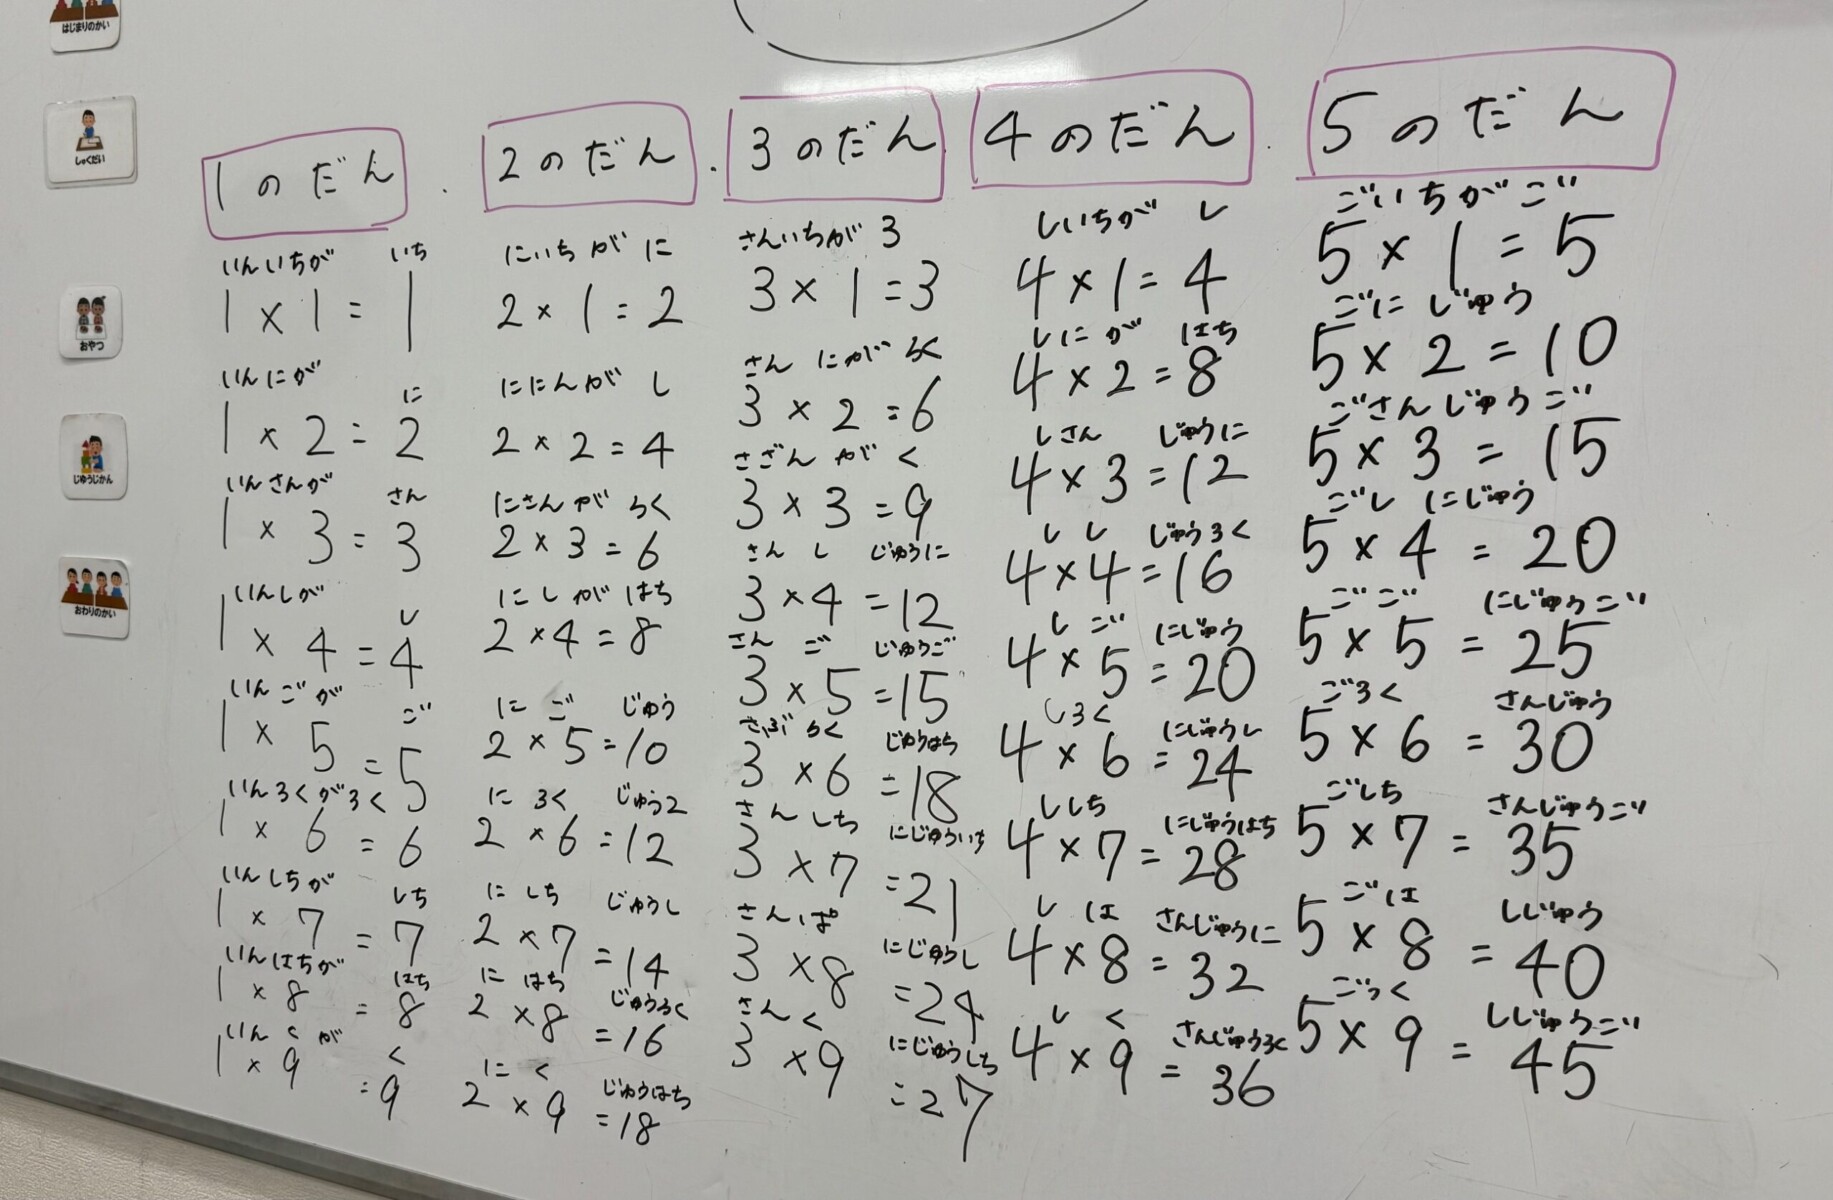 はじまりのかい
しゅくだい
おやつ
じゆうじかん
おわりのかい
1のだん
いんいちが いち
1 × 1 = 1
いんにが に
1 × 2 = 2
いんさんが さん
1 × 3 = 3
いんしが し
1 × 4 = 4
いんごが ご
1 × 5 = 5
いんろくがろく
1 × 6 = 6
いんしちが しち
1 × 7 = 7
いんはちが はち
1 × 8 = 8
いんくが く
1 × 9 = 9
2のだん
にいちが に
2 × 1 = 2
ににんが し
2 × 2 = 4
にさんが ろく
2 × 3 = 6
にしが はち
2 × 4 = 8
に ご じゅう
2 × 5 = 10
に ろく じゅう2
2 × 6 = 12
に しち じゅうし
2 × 7 = 14
に はち じゅうろく
2 × 8 = 16
に く じゅうはち
2 × 9 = 18
3のだん
さんいちが 3
3 × 1 = 3
さん にが ろく
3 × 2 = 6
さざんが く
3 × 3 = 9
さん し じゅうに
3 × 4 = 12
さん ご じゅうご
3 × 5 = 15
さぶ ろく じゅうはち
3 × 6 = 18
さん しち にじゅういち
3 × 7 = 21
さんぱ にじゅうし
3 × 8 = 24
さんく にじゅうしち
3 × 9 = 27
4のだん
しいちが し
4 × 1 = 4
しにが はち
4 × 2 = 8
しさん じゅうに
4 × 3 = 12
し し じゅうろく
4 × 4 = 16
し ご にじゅう
4 × 5 = 20
しろく にじゅうし
4 × 6 = 24
ししち にじゅうはち
4 × 7 = 28
し は さんじゅうに
4 × 8 = 32
し く さんじゅうろく
4 × 9 = 36
5のだん
ごいちがご
5 × 1 = 5
ごに じゅう
5 × 2 = 10
ごさんじゅうご
5 × 3 = 15
ごし にじゅう
5 × 4 = 20
ごご にじゅうご
5 × 5 = 25
ごろく さんじゅう
5 × 6 = 30
ごしち さんじゅうご
5 × 7 = 35
ごは しじゅう
5 × 8 = 40
ごっく しじゅうご
5 × 9 = 45